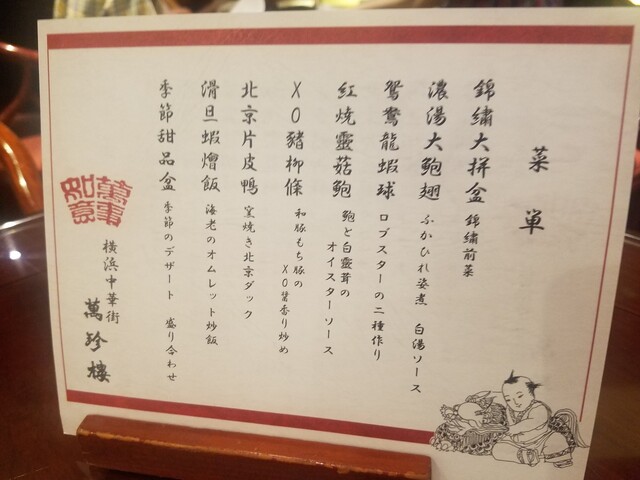 菜単
錦繡大拼盆 錦繍前菜
濃湯大鮑翅 ふかひれ姿煮 白湯ソース
鴛鴦龍蝦球 ロブスターの二種作り
紅燒靈菇鮑 鮑と白靈茸の
オイスターソース
XO豬柳條 和豚もち豚の
XO醤香り炒め
北京片皮鴨 窯焼き北京ダック
滑旦蝦燴飯 海老のオムレット炒飯
季節甜品盆 季節のデザート 盛り合わせ
萬事如意
横浜中華街
萬珍樓